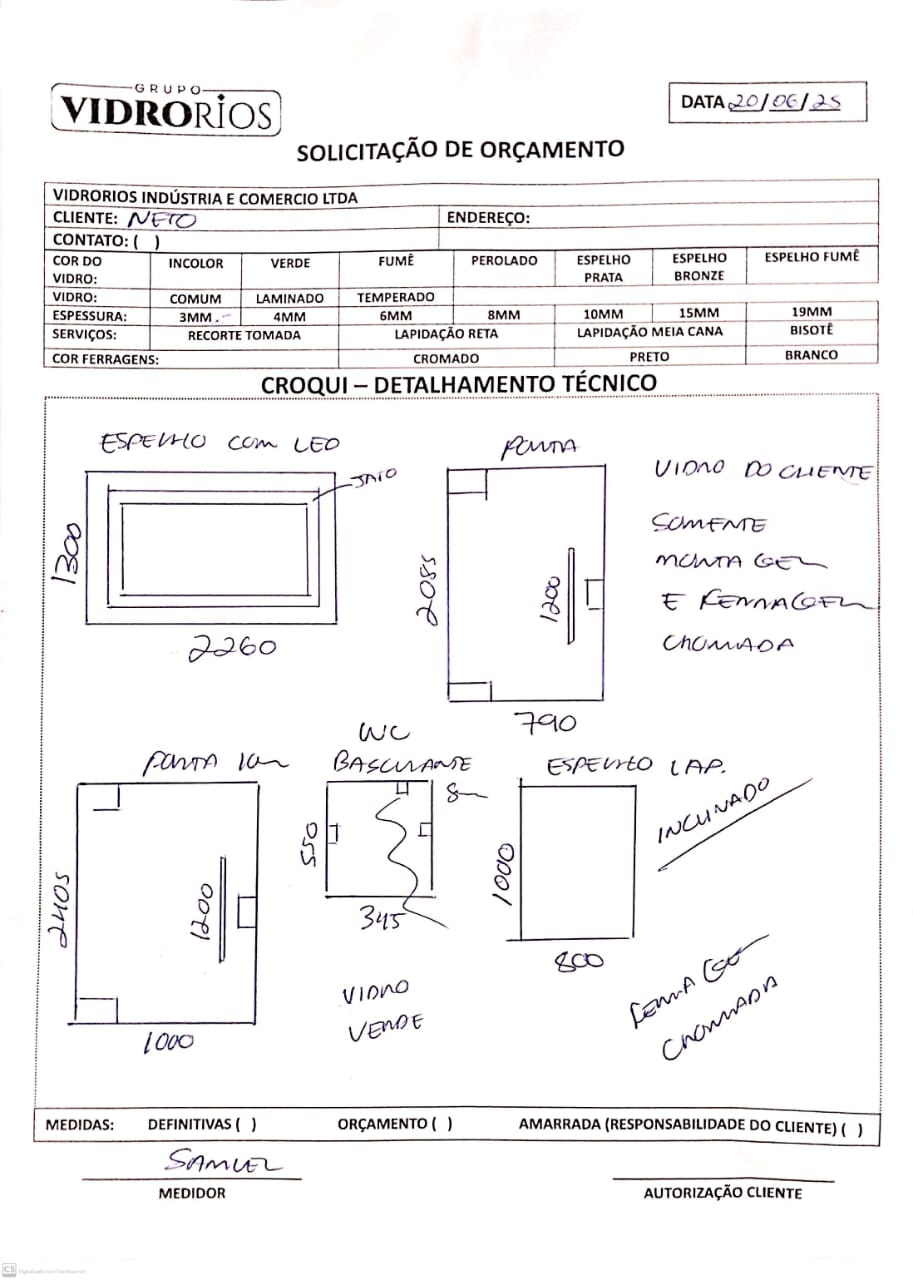 GRUPO
VIDRORIOS
DATA 20/06/25
SOLICITAÇÃO DE ORÇAMENTO
VIDRORIOS INDÚSTRIA E COMERCIO LTDA
CLIENTE: NETO ENDEREÇO:
CONTATO: ( )
COR DO VIDRO: INCOLOR VERDE FUMÊ PEROLADO ESPELHO PRATA ESPELHO BRONZE ESPELHO FUMÊ
VIDRO: COMUM LAMINADO TEMPERADO
ESPESSURA: 3MM 4MM 6MM 8MM 10MM 15MM 19MM
SERVIÇOS: RECORTE TOMADA LAPIDAÇÃO RETA LAPIDAÇÃO MEIA CANA BISOTÊ
COR FERRAGENS: CROMADO PRETO BRANCO
CROQUI – DETALHAMENTO TÉCNICO
ESPELHO COM LED
JATO
1300
2260
PORTA
2085
1200
790
VIDRO DO CLIENTE
SOMENTE
MONTAGEM
E FERRAGEM
CROMADA
PORTA 10m
2405
1200
1000
WC
BASCULANTE
8m
550
345
VIDRO
VERDE
ESPELHO LAP.
1000
800
INCLINADO
FERRAGEM
CROMADA
MEDIDAS: DEFINITIVAS ( ) ORÇAMENTO ( ) AMARRADA (RESPONSABILIDADE DO CLIENTE) ( )
SAMUEL
MEDIDOR
AUTORIZAÇÃO CLIENTE
CS